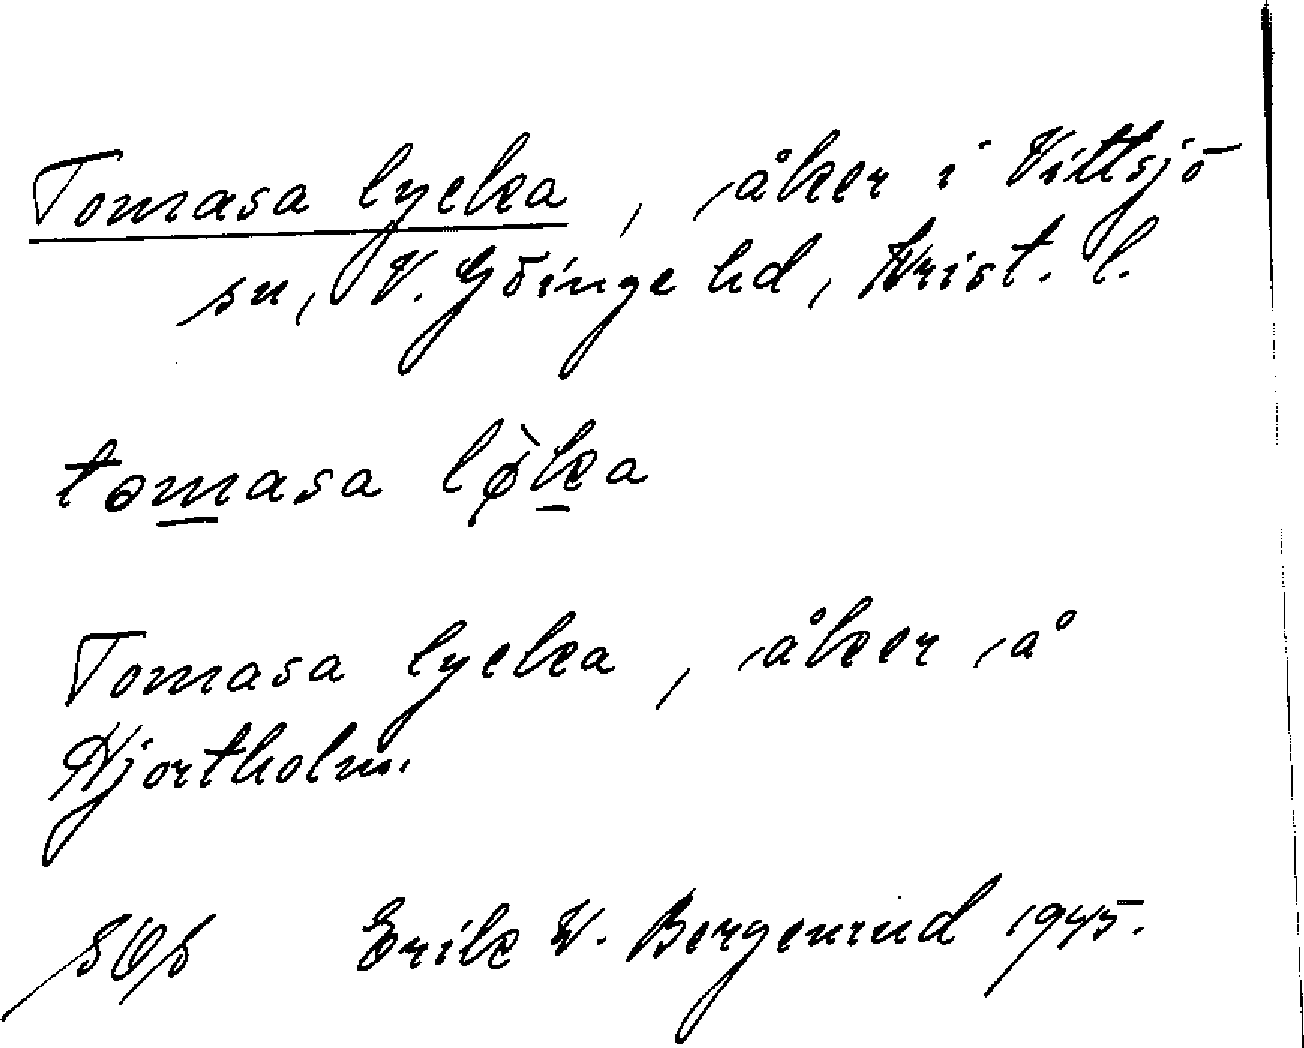 Tomasa lycka, åker i Vittsjö
sn, V. Göinge hd, Krist. l.
tomasa lø̀ka
Tomasa lycka, åker å
Hjortholm.
Erik W. Bergenrud 1945.